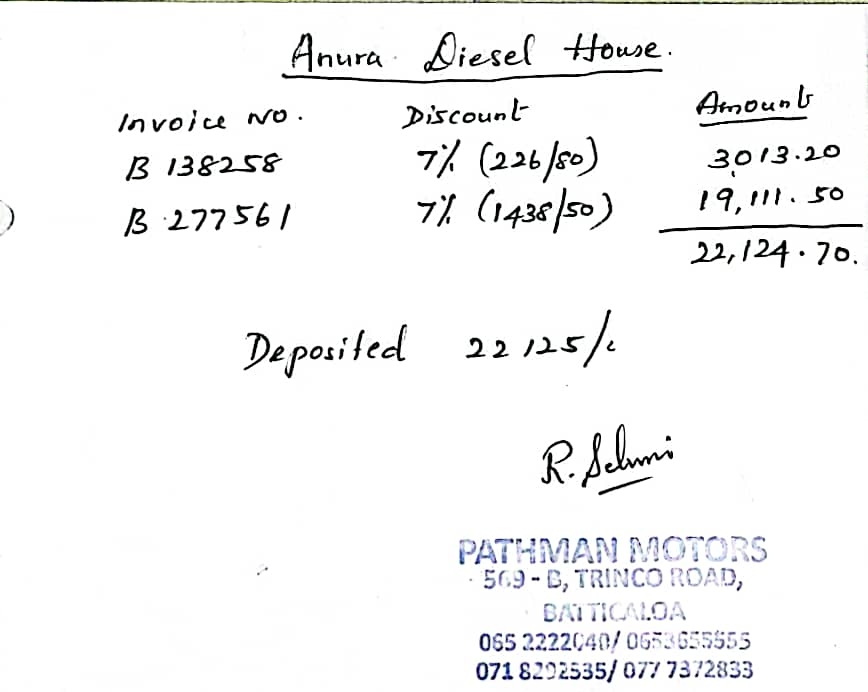 Anura Diesel House.
Invoice No. Discount Amount
B 138258 7% (226/80) 3013.20
B 277561 7% (1438/50) 19,111.50
22,124.70.
Deposited 22125/-
R. Selvni
PATHMAN MOTORS
569 - B, TRINCO ROAD,
BATTICALOA
065 2222040/ 0653655555
071 8292535/ 077 7372833